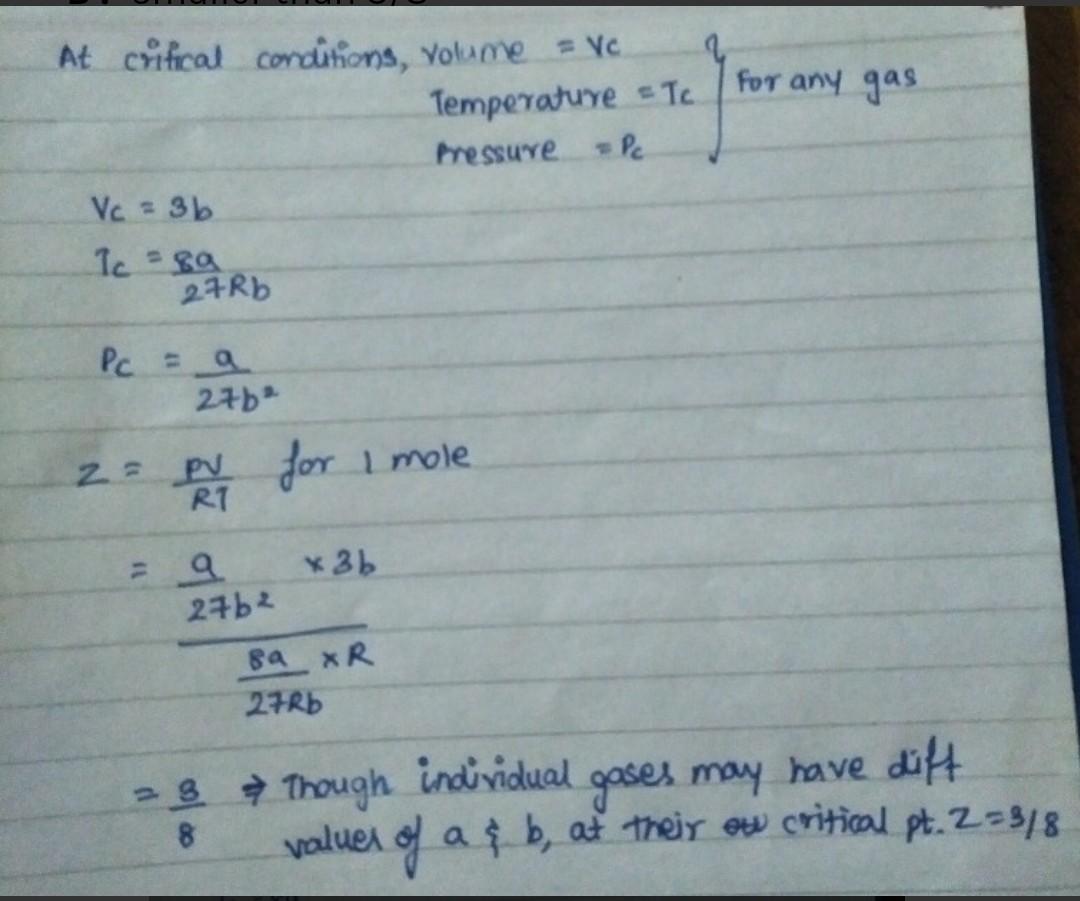 At critical conditions, volume = Vc
Temperature = Tc
Pressure = Pc
For any gas
Vc = 3b
Tc = 8a
27Rb
Pc = a
27b²
Z = PV for 1 mole
RT
= a × 3b
27b²
8a × R
27Rb
= 3 ⇒ Though individual gases may have diff
8 values of a & b, at their critical pt. Z = 3/8